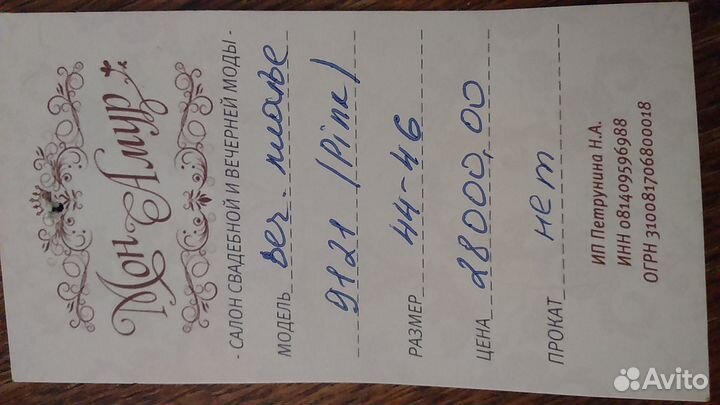 Мон Амур
- САЛОН СВАДЕБНОЙ И ВЕЧЕРНЕЙ МОДЫ -
МОДЕЛЬ веч. платье
9121 /Pink/
РАЗМЕР 44-46
ЦЕНА 28000,00
ПРОКАТ нет
ИП Петрунина Н.А.
ИНН 081409596988
ОГРН 310081706800018
Avito